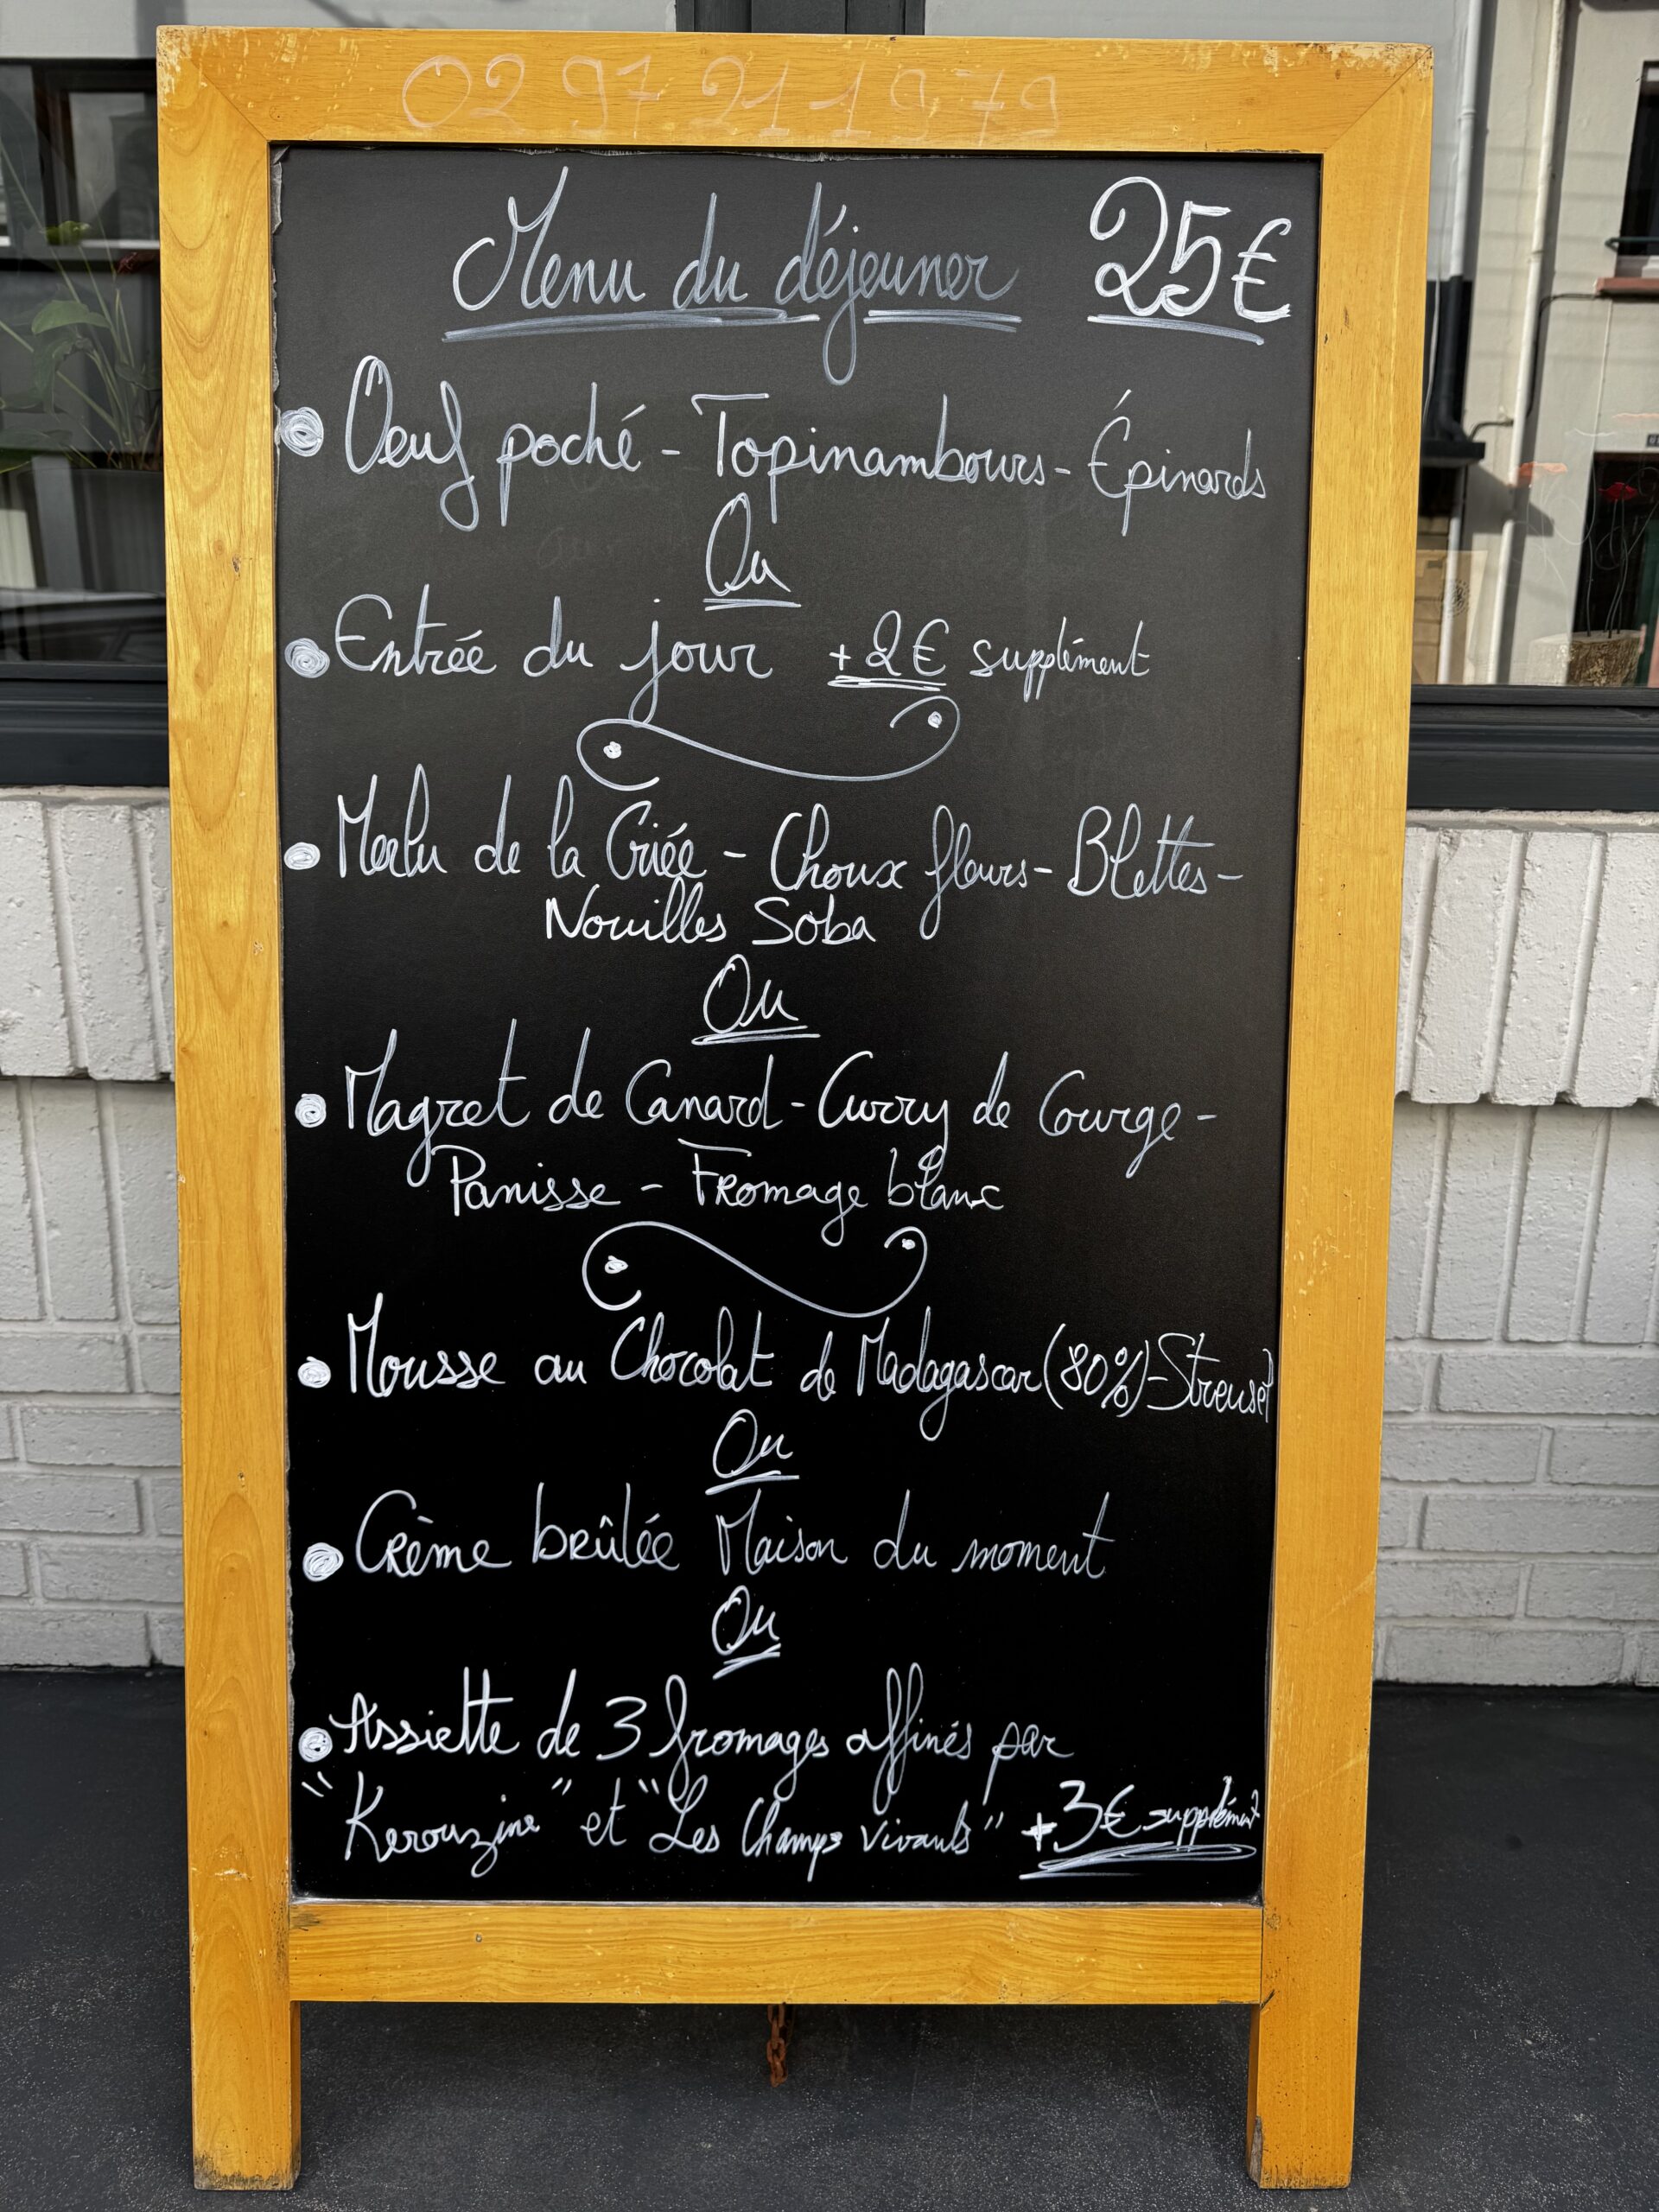 02 97 21 19 79
Menu du déjeuner 25€
Oeuf poché - Topinambours - Épinards
Ou
Entrée du jour +2€ supplément
Merlu de la Criée - Choux fleurs - Blettes -
Nouilles Soba
Ou
Magret de Canard - Curry de Courge -
Panisse - Fromage blanc
Mousse au Chocolat de Madagascar (80%) - Streusel
Ou
Crème brûlée Maison du moment
Ou
Assiette de 3 fromages affinés par
"Kerouzine" et "Les Champs vivants" +3€ supplément